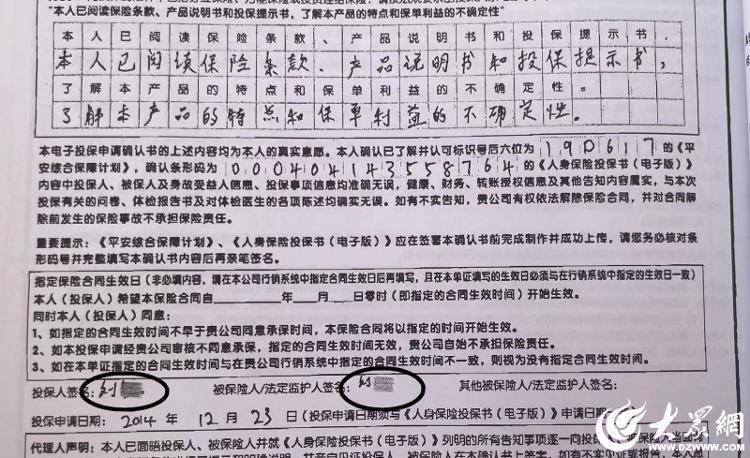 “本人已阅读保险条款、产品说明书和投保提示书，了解本产品的特点和保单利益的不确定性”
本人已阅读保险条款、产品说明书和投保提示书，
本人已阅读保险条款、产品说明书和投保提示书，
了解本产品的特点和保单利益的不确定性。
了解本产品的特点和保单利益的不确定性。
本电子投保申请确认书的上述内容均为本人的真实意愿。本人确认已了解并认可标识号后六位为190617的《平
安综合保障计划》，确认条形码为00040414355 8764的《人身保险投保书（电子版）》
内容中投保人、被保人及身故受益人信息、投保事项信息均准确无误，健康、财务、转账授权信息及其他告知内容属实，与本次
投保有关的问卷、体检报告书及对体检医生的各项陈述均确实无误。如有不实告知，贵公司有权依法解除保险合同，并对合同解
除前发生的保险事故不承担保险责任。
重要提示：《平安综合保障计划》、《人身保险投保书（电子版）》应在签署本确认书前完成制作并成功上传，请您务必核对条
形码号并完整填写本确认书内容后再亲笔签名。
指定保险合同生效日（非必填内容，请在本公司行销系统中指定合同生效日后再填写，且在本单证填写的生效日必须与在行销系统中指定的生效日一致）
本人（投保人）希望本保险合同自 年 月 日零时（即指定的合同生效时间）开始生效。
同时本人（投保人）同意：
1、如指定的合同生效时间不早于贵公司同意承保时间，本保险合同将以指定的时间开始生效。
2、如本投保申请经贵公司审核不同意承保，指定的合同生效时间无效，贵公司自始不承担保险责任。
3、如在本单证指定的合同生效时间与在贵公司行销系统中指定的合同生效时间不一致，则视为没有指定合同生效时间。
投保人签名：刘 被保险人/法定监护人签名： 其他被保险人/法定监护人签名：
投保申请日期：2014 年 12 月 23 日（投保申请日期须与《人身保险投保书（电子版）》申请日期
代理人声明：本人已面晤投保人、被保险人并就《人身保险投保书（电子版）》列明的所有告知事项逐一向投保人
大众網
www.dzwww.com